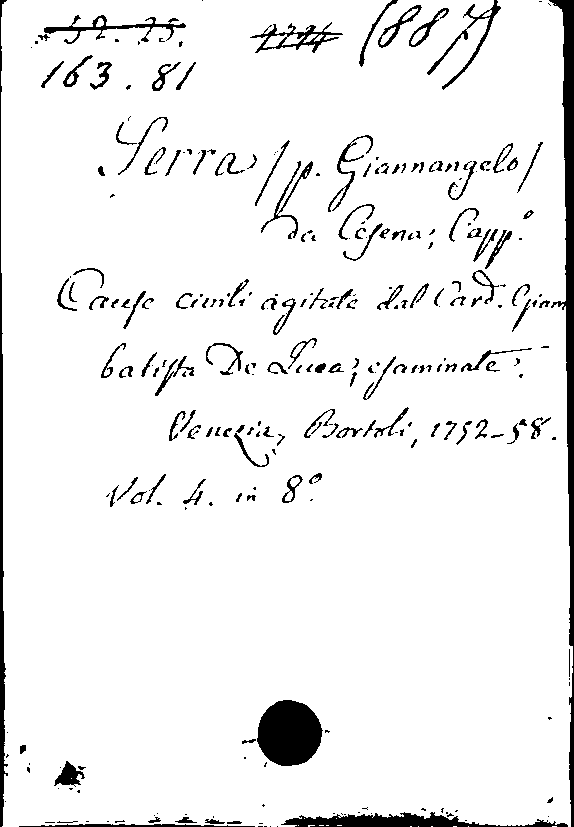 52. 25. 2794 (887)
163. 81
Serra / p. Giannangelo /
da Cesena; Capp.º
Cause civili agitate dal Card. Giam
batista De Luca; esaminate.
Venezia, Bortoli, 1752-58.
Vol. 4. in 8º